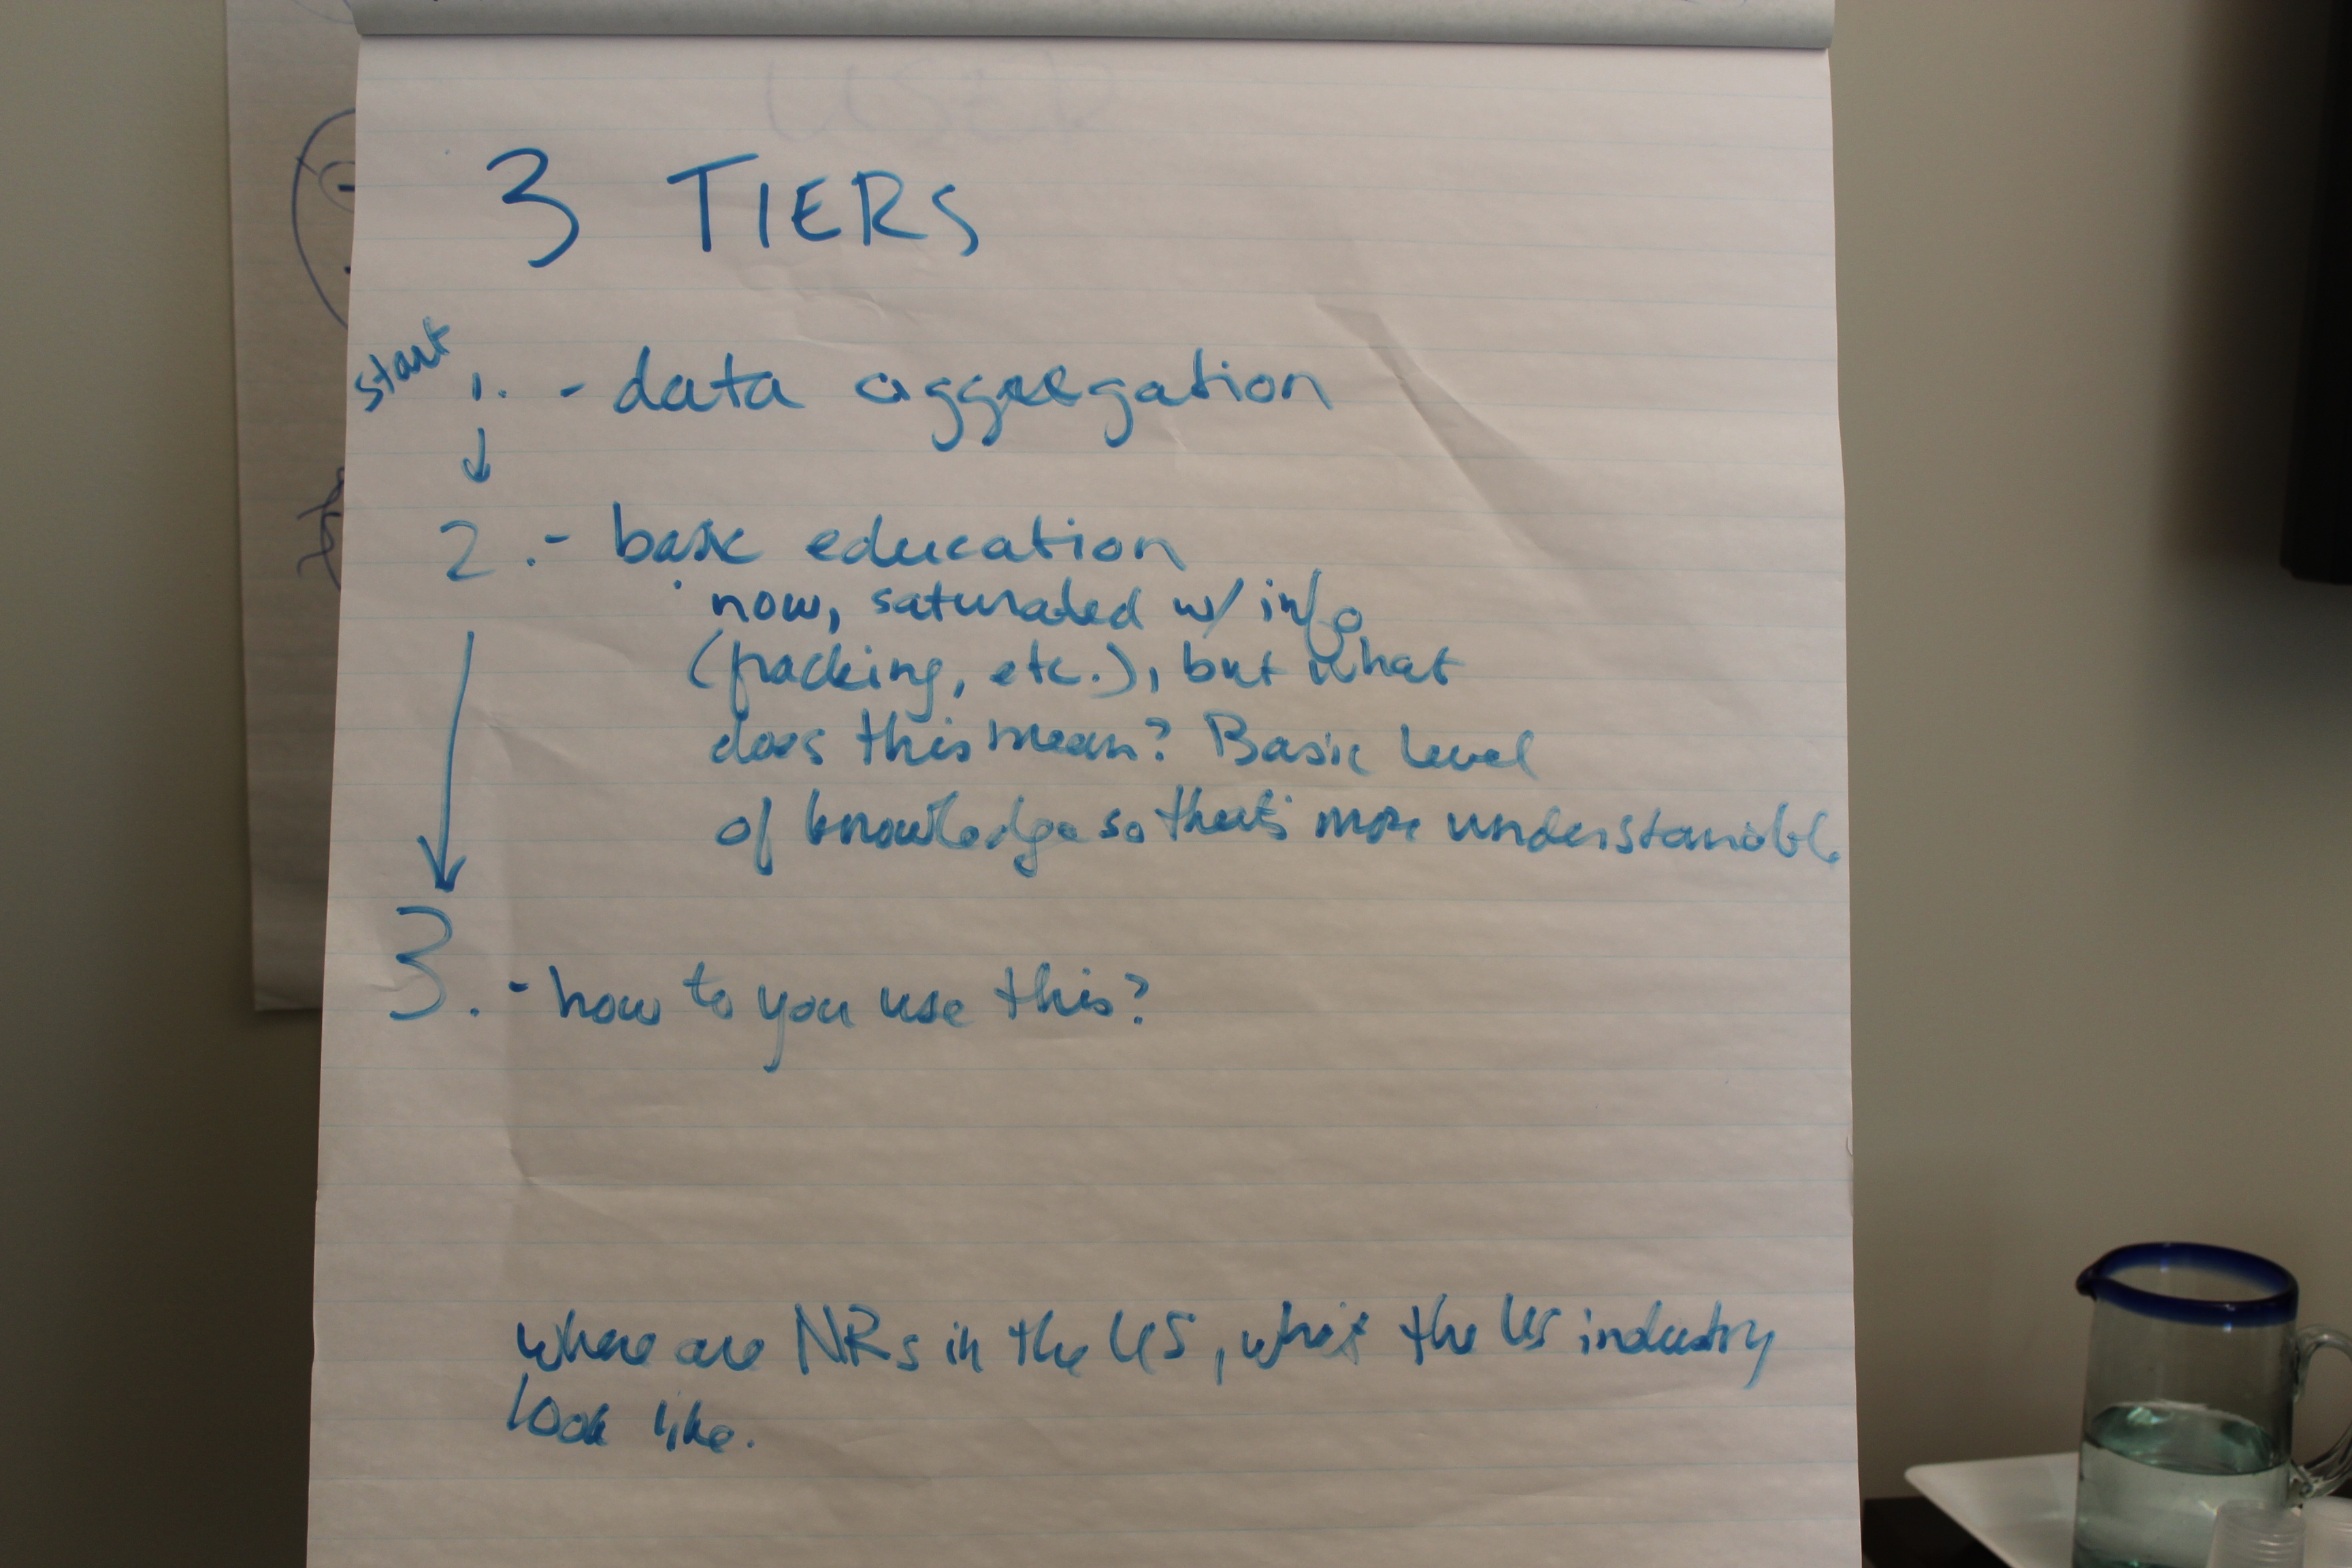 USER
3 TIERS
start
1. - data aggregation
2. - basic education
now, saturated w/ info
(fracking, etc.), but what
does this mean? Basic level
of knowledge so that's more understandable
3. - how to you use this?
where are NRs in the US, what the US industry
look like.